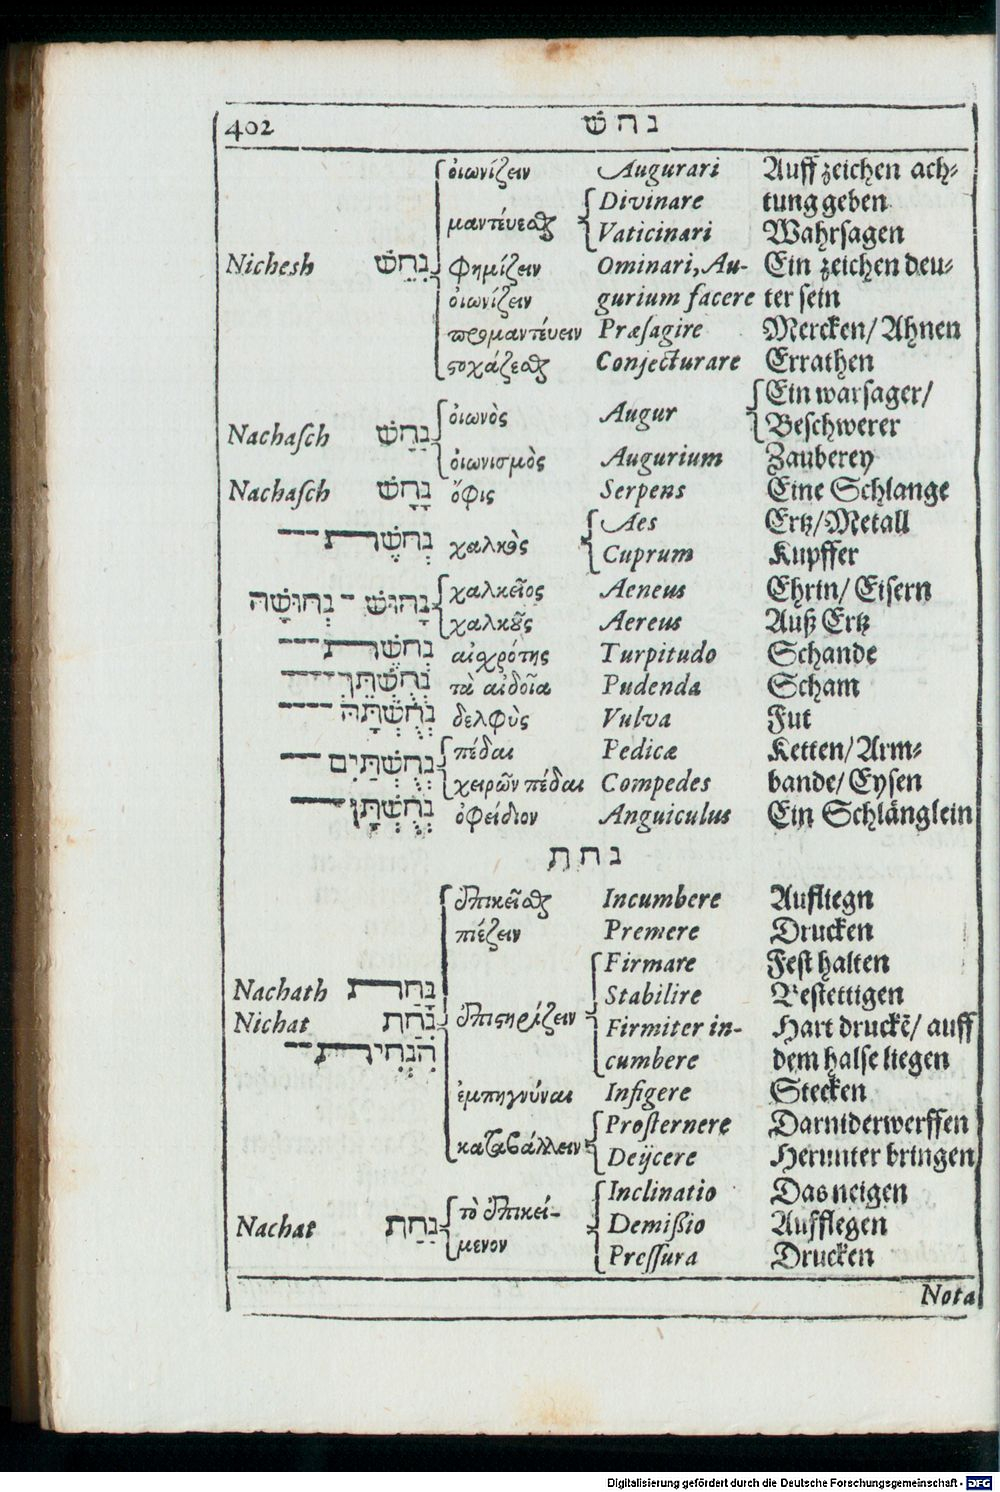 402 נחש
οἰωνίζειν Augurari Auff zeichen ach-
μαντέυεσθζ Divinare tung geben
Vaticinari Wahrsagen
Nichesh נִחֵשׁ φημίζειν Ominari, Au- Ein zeichen deu-
οἰωνίζειν gurium facere ter sein
προμαντέυειν Præsagire Mercken/ Ahnen
στοχάζεσθζ Conjecturare Errathen
Ein warsager/
Nachasch נַחַשׁ οἰωνὸς Augur Beschwerer
οἰωνισμὸς Augurium Zauberey
Nachasch נָחָשׁ ὄφις Serpens Eine Schlange
נְחֹשֶׁת χαλκὸς Aes Ertz/Metall
Cuprum Kupffer
נָחוּשׁ - נְחוּשָׁה χαλκεῖος Aeneus Ehrin/ Eisern
χαλκοῦς Aereus Auß Ertz
נְחֹשֶׁת αἰσχρότης Turpitudo Schande
נְחֻשְׁתֵּךְ τὰ αἰδοῖα Pudenda Scham
נְחֻשְׁתָּהּ δελφὺς Vulva Fut
נְחֻשְׁתַּיִם πέδαι Pedicæ Ketten/Arm-
χειρῶν πέδαι Compedes bande/Eysen
נְחֻשְׁתָּן ὀφείδιον Anguiculus Ein Schlänglein
נחת
ἐπικεῖσθζ Incumbere Aufliegn
πιέζειν Premere Drucken
Firmare Fest halten
Nachath נָחַת Stabilire Bestettigen
Nichat נִחַת ἐπιστηρίζειν Firmiter in- Hart druckē/ auff
הִנְחִית cumbere dem halse liegen
ἐμπηγνύναι Infigere Stecken
καταβάλλειν Prosternere Darniderwerffen
Deijcere Herunter bringen
Inclinatio Das neigen
Nachat נַחַת τὸ ἐπικεί- Demißio Aufflegen
μενον Pressura Drucken
Nota
Digitalisierung gefördert durch die Deutsche Forschungsgemeinschaft - DFG